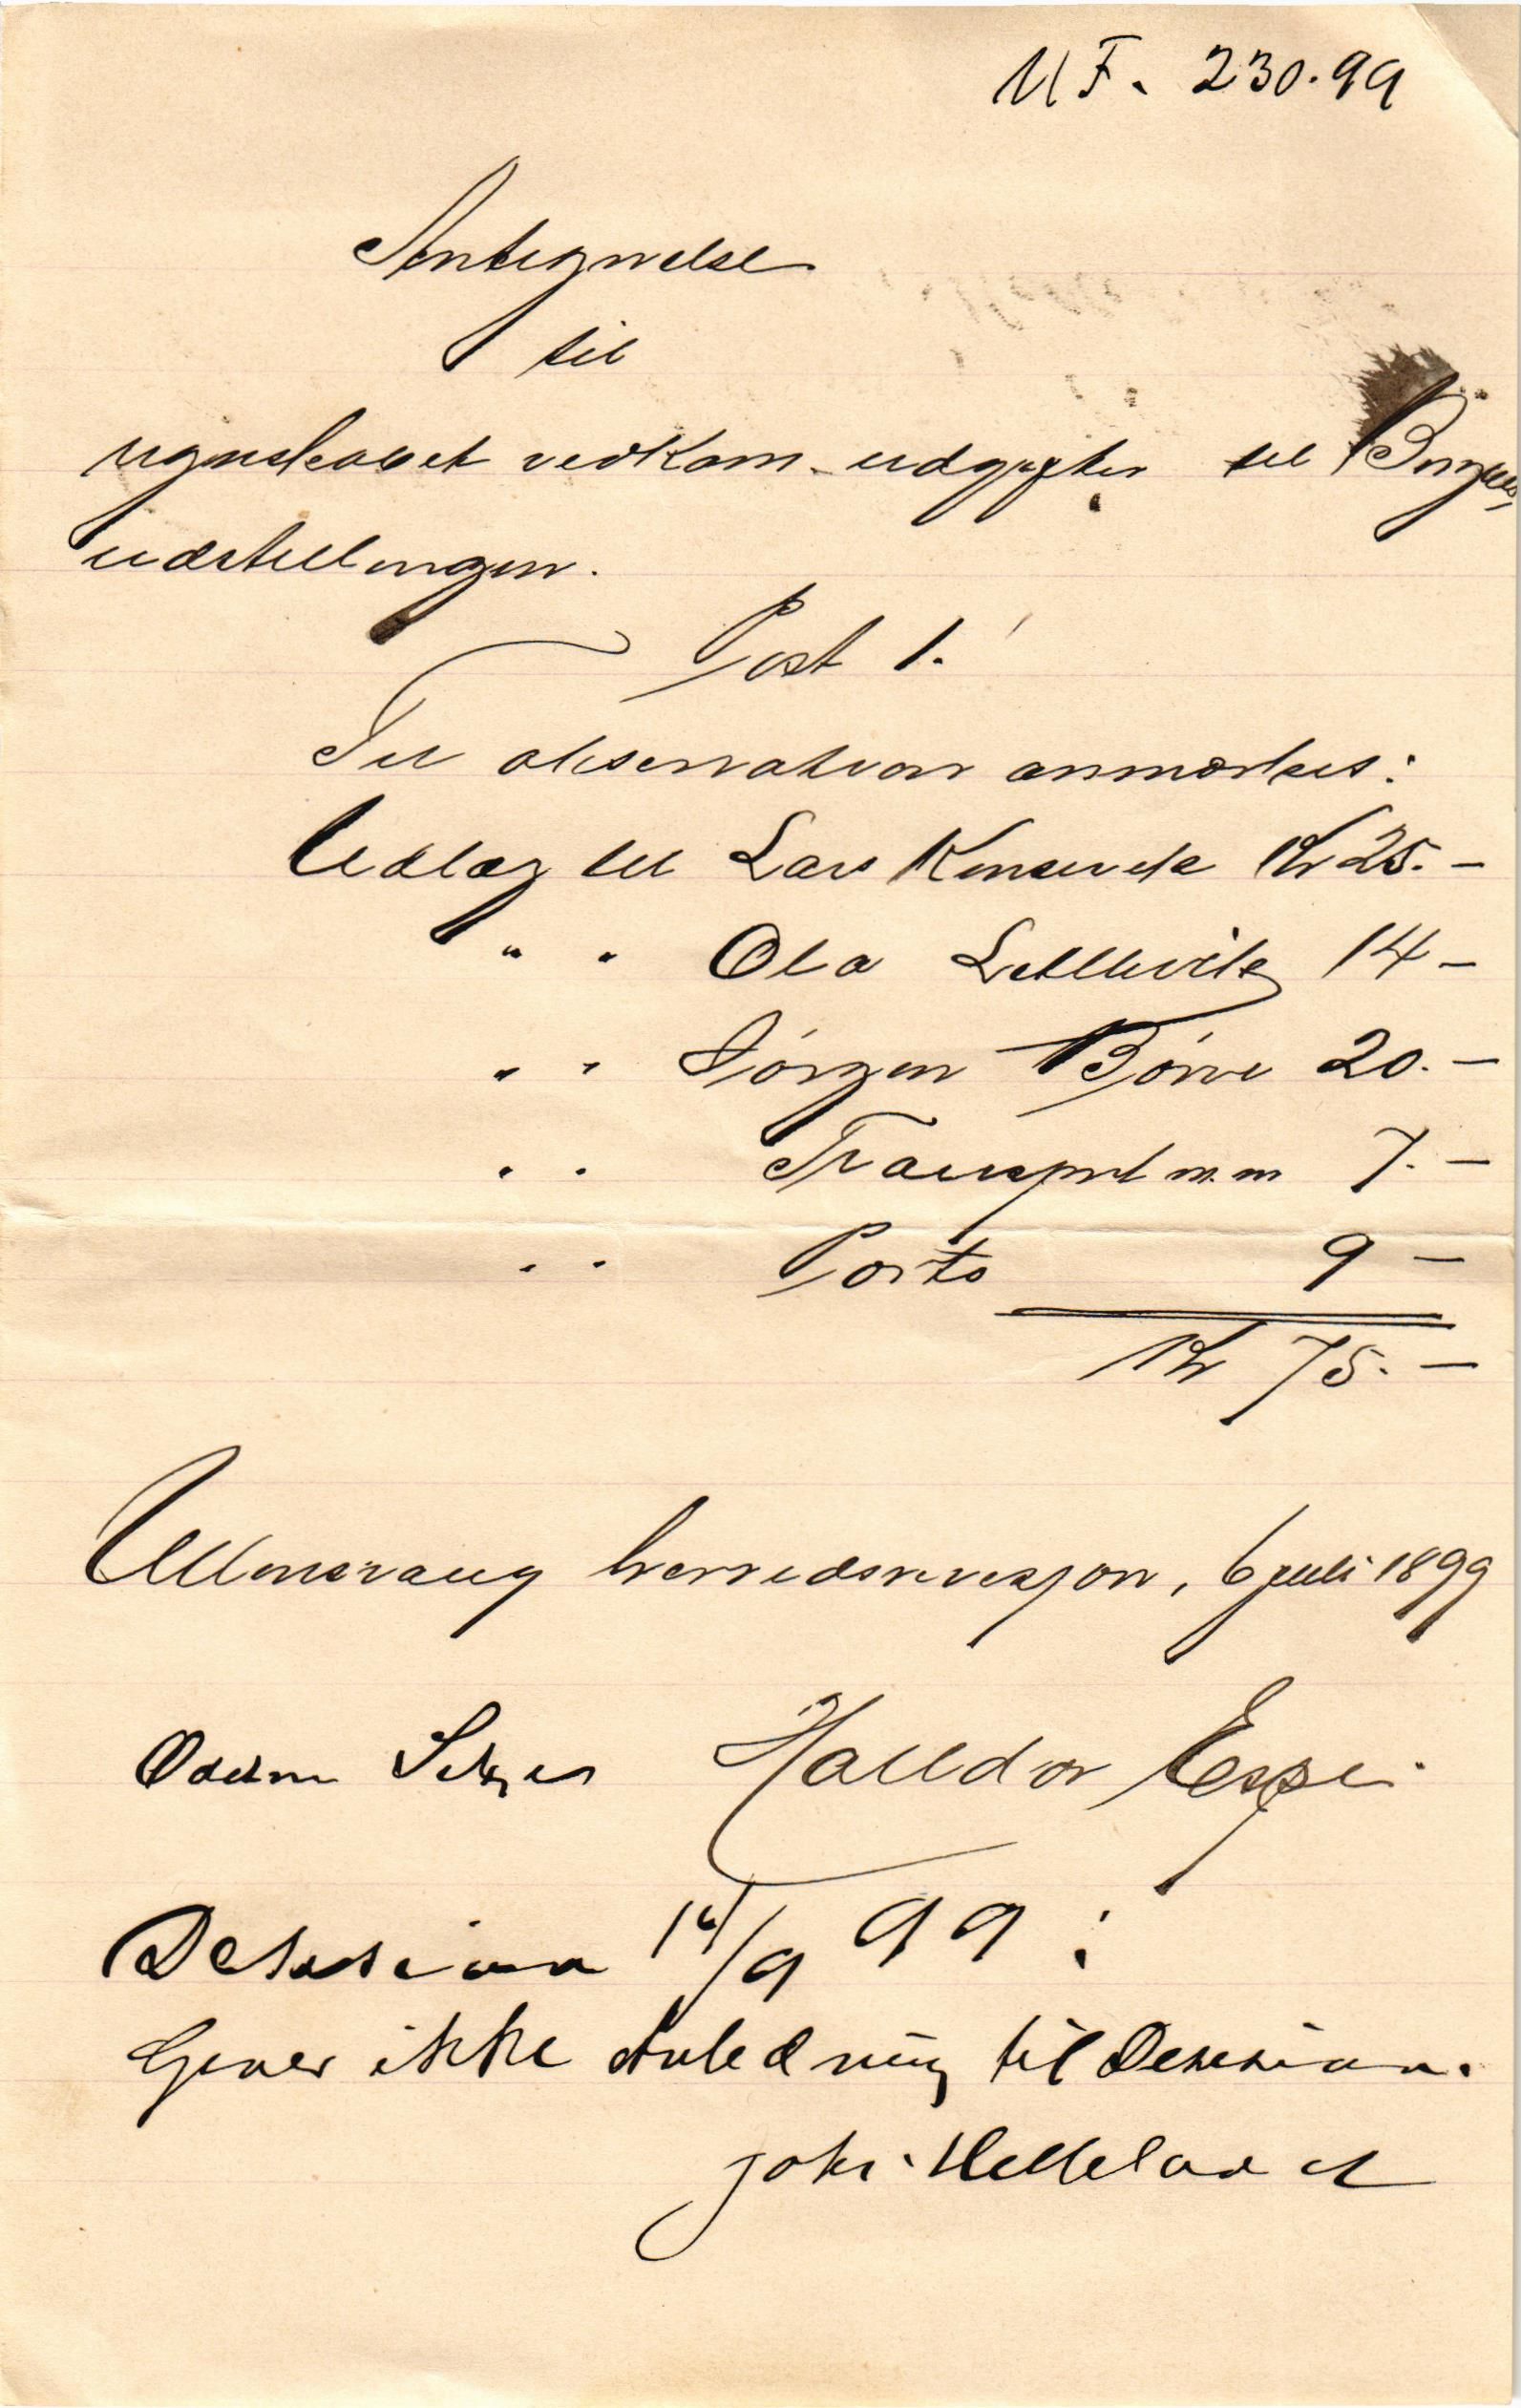 UF. 230.99
Antegnelse
til
regnskabet vedkom. udgifter til Bergens-
udstillingen.
Post 1.
Til observation anmærkes:
Udlæg til Lars Kinservik Kr 25.-
" " Ola Lutluvik 14-
" " Jørgen Børve 20.-
" " Transport m.m 7.-
" " Porto 9-
Kr 75.-
Ullensvang herredsrevisjon, 6 juli 1899
Halldor Espe.
Desision 14/9 99:
Gever ikke Anledning til Desision.
Johs. Helleland